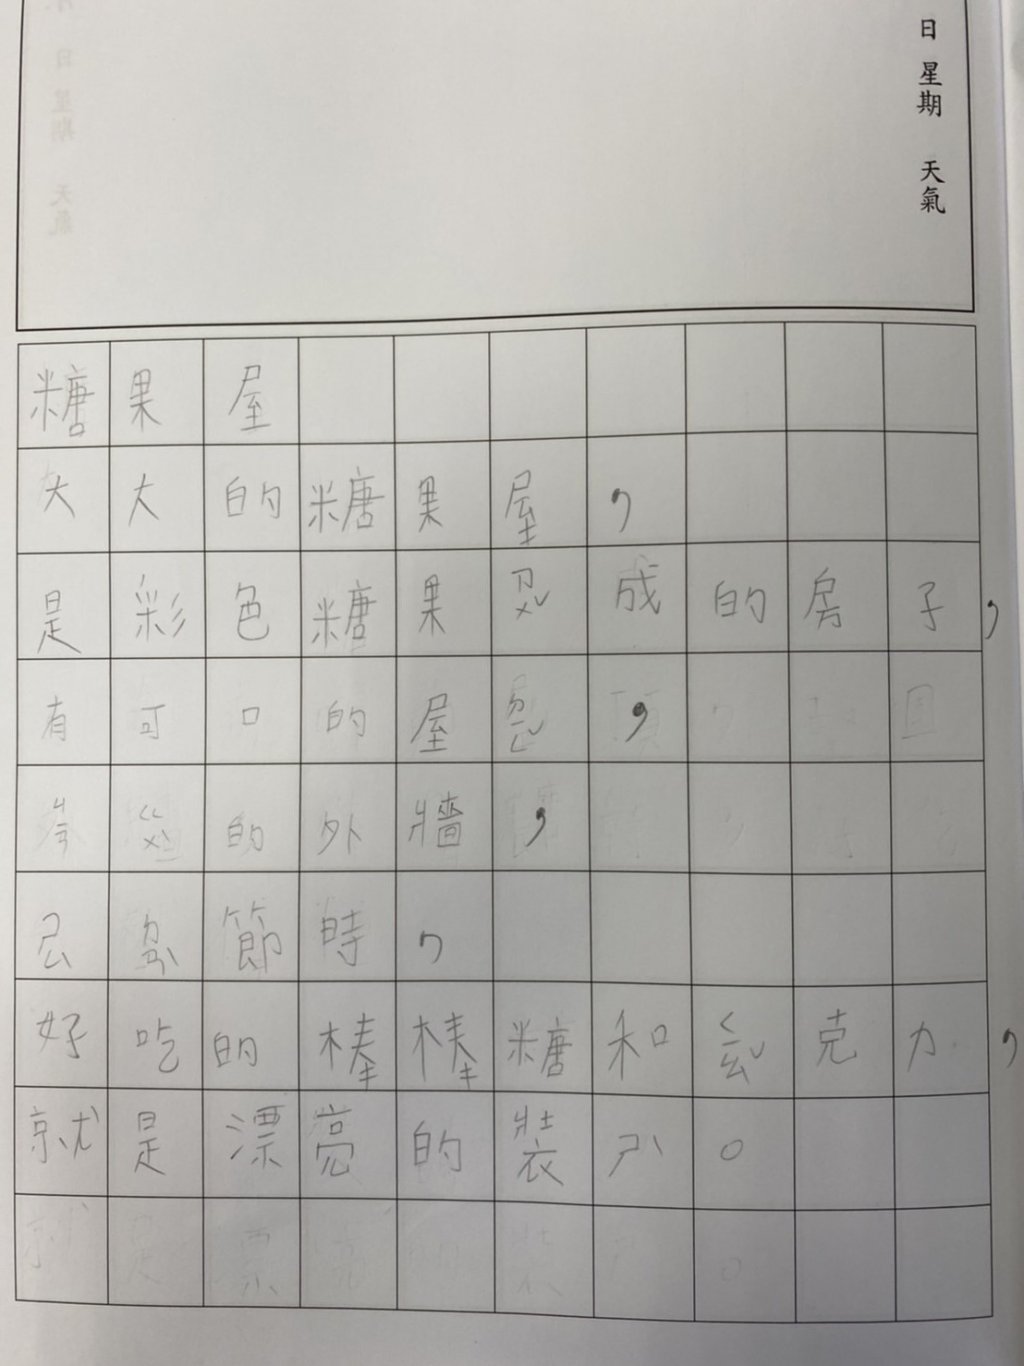 日 星期 天氣
糖果屋
大大的糖果屋，
是彩色糖果ㄗㄨˇ成的房子，
有可口的屋ㄉㄧㄥˇ，
的外牆，
節時，
好吃的棒棒糖和ㄑㄧㄠˇ克力，
就是漂亮的裝ㄕˋ。